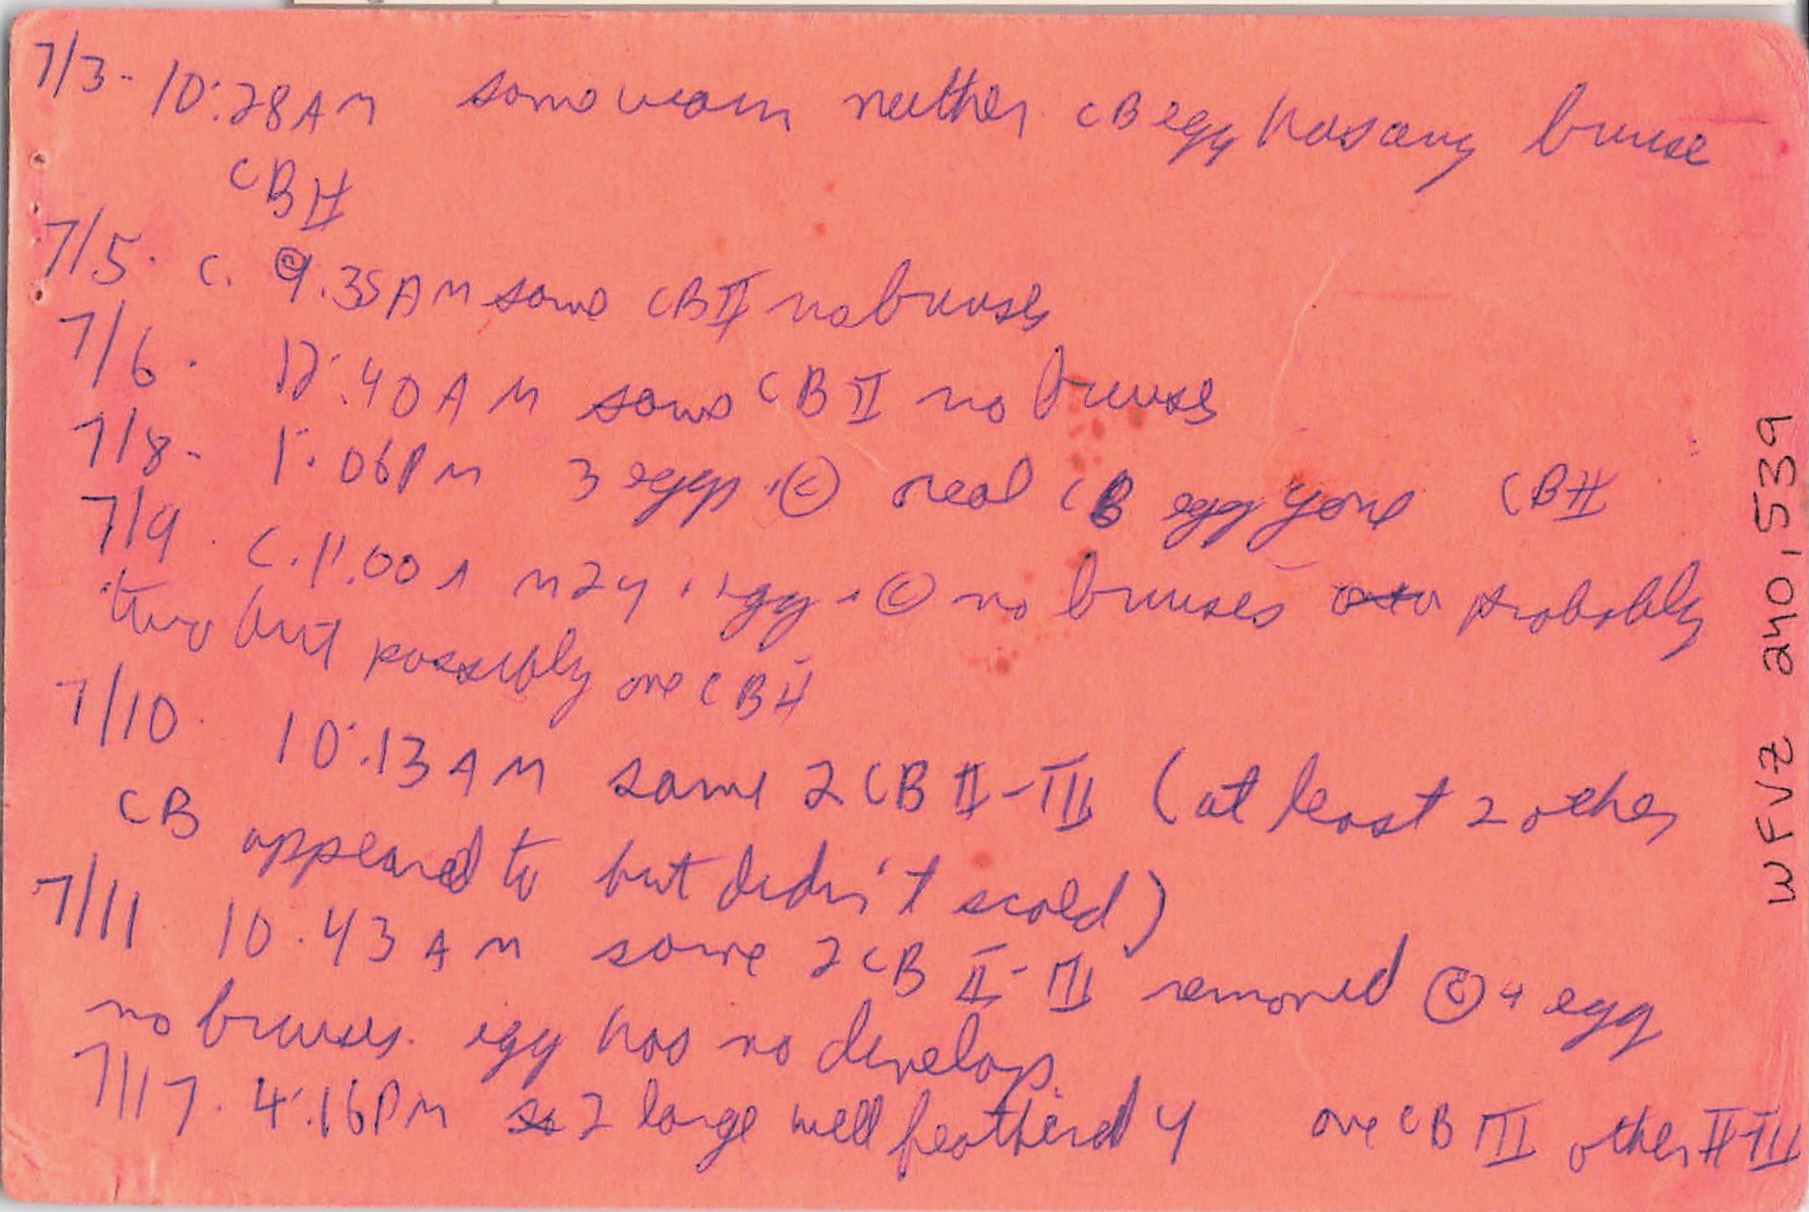 7/3- 10:28AM same warm neither CB egg has any bruise
CBII
7/5. c. 9.35AM same CBII no bruises
7/6. 12:40AM same CBII no bruises
7/8- 1:06PM 3 eggs + © real CB egg gone CBII
7/9. c. 11.00AM 2y, 1 egg + © no bruises probably
two but possibly one CBII
7/10. 10:13AM same 2CB II-III (at least 2 other
CB appeared to but didn't scold)
7/11. 10.43AM same 2CB II-III removed © + egg
no bruises. egg has no develop.
7/17. 4:16PM 2 large well feathered y one CB III other II-III
WFVZ 240,539